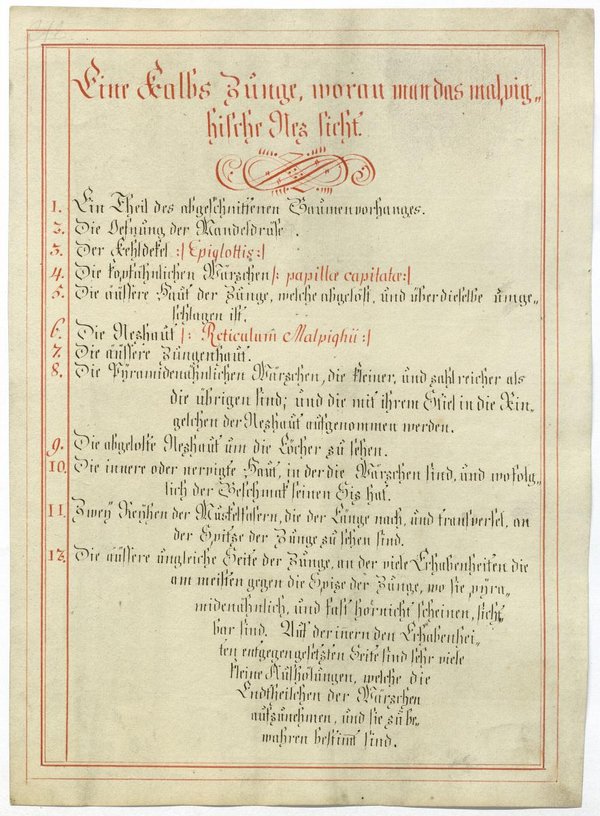 Eine Kalbs Zunge, woran man das malpig„
hische Nez sieht.
1. Ein Theil des abgeschnittenen Gaumenvorhanges.
2. Die Oefnung der Mandeldrüse.
3. Der Kehldekel :/ Epiglottis:/
4. Die kopfähnlichen Wärzchen /: papillæ capitatæ:/
5. Die äussere Haut der Zunge, welche abgelöst, und über dieselbe umge„
schlagen ist.
6. Die Nezhaut /: Reticulum̃ Malpighii :/
7. Die äussere Zungenhaut.
8. Die Pÿramidenähnlichen Wärzchen, die kleiner, und zahlreicher als
die übrigen sind; und die mit ihrem Stiel in die Rin„
gelchen der Nezhaut aufgenommen werden.
9. Die abgelöste Nezhaut um die Löcher zu sehen.
10. Die innere oder nervigte Haut, in der die Wärzchen sind, und wo folg„
lich der Geschmak seinen Siz hat.
11. Zweÿ Reÿhen der Muskelfasern, die der Länge nach, und transversel, an
der Spitze der Zunge zu sehen sind.
12. Die äussere ungleiche Seite der Zunge, an der viele Erhabenheiten die
am meisten gegen die Spize der Zunge, wo sie pÿra„
midenähnlich, und fast hörnicht scheinen, sicht„
bar sind. Auf der inern den Erhabenhei„
ten entgegengesetzten Seite sind sehr viele
kleine Aushölungen, welche die
Endtheilchen der Wärzchen
aufzunehmen, und sie zu be„
wahren bestim̅t sind.